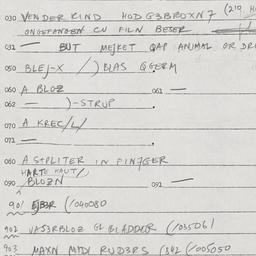 030 VENDER KIND HOD G3BBROXN7 (219
ONGEFANGEN CN FILN BESER
032 — BUT MEJKET QAP ANIMAL OR
050 BLEJ-X /) BLAS QGERM
060 A BLOZ 061 —
062 — )-STRUP
070 A KREC/L/
072 —
080 A STPLITER IN FIN7GER
HARTE HAUT/)
090 BLOZN 092 —
901 (/040080
902 VAS3RBLOZ GL BLADDER (/035061
903 MAXN MIDI RUD3RS (342 (/005050